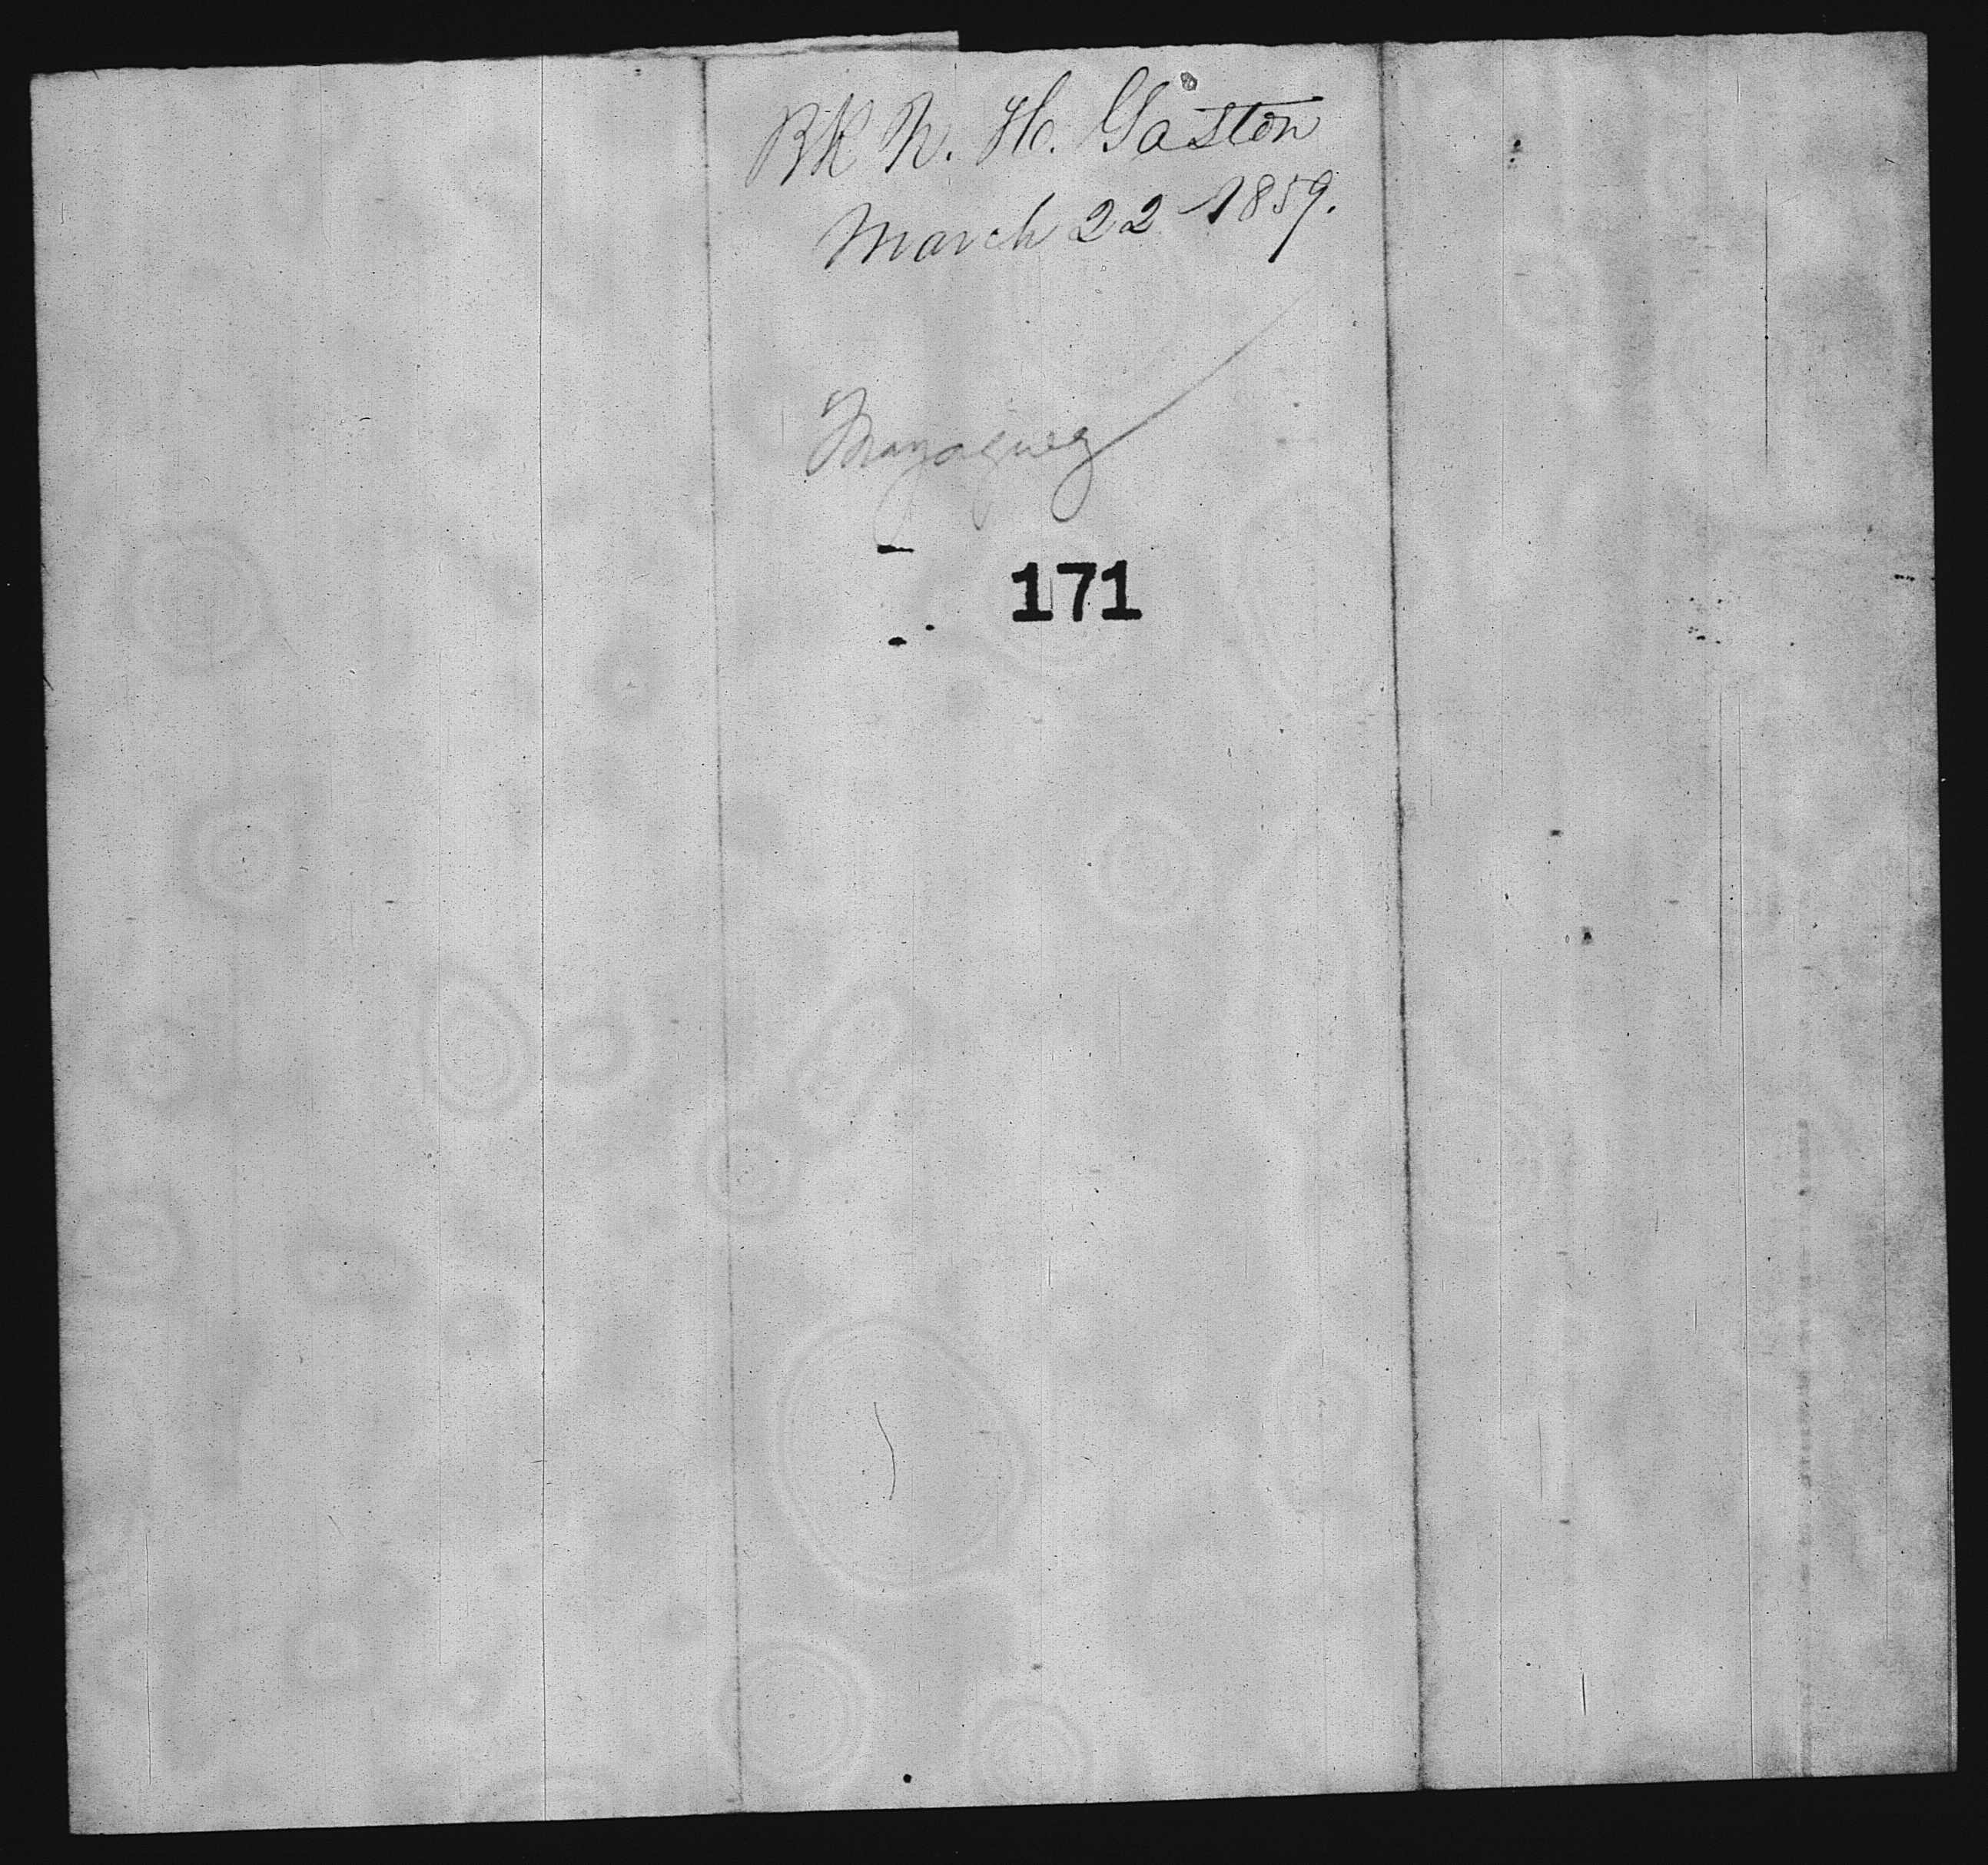 BK N. H. Gaston
March 22 1859.
Mayaguez
171